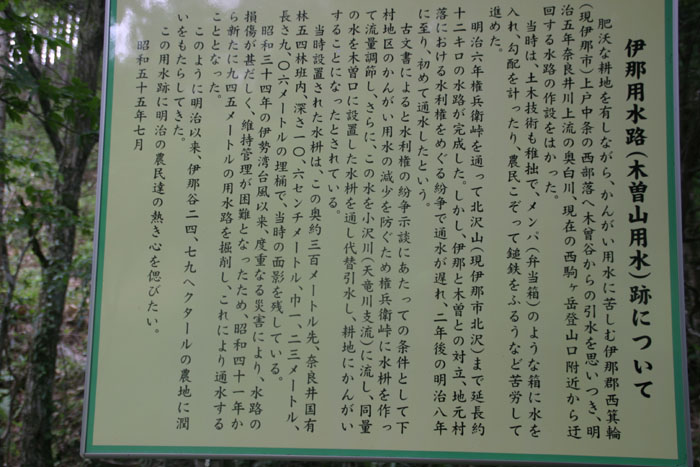 伊那用水路(木曽山用水)跡について
肥沃な耕地を有しながら、かんがい用水に苦しむ伊那郡西箕輪
(現伊那市)上戸中条の西部落へ木曽谷からの引水を思いつき、明
治五年奈良井川上流の奥白川、現在の西駒ヶ岳登山口附近から迂
回する水路の作設をはかった。
当時は、土木技術も稚拙で、メンパ(弁当箱)のような箱に水を
入れ、勾配を計ったり、農民こぞって鎚鉄をふるうなど苦労して
進めた。
明治六年権兵衛峠を通って北沢山(現伊那市北沢)まで延長約
十二キロの水路が完成した。しかし、伊那と木曽との対立、地元村
落における水利権をめぐる紛争で通水が遅れ、二年後の明治八年
に至り、初めて通水したという。
古文書によると水利権の紛争示談にあたっての条件として下
村地区のかんがい用水の減少を防ぐため権兵衛峠に水枡を作っ
て流量調節し、さらに、この水を小沢川(天竜川支流)に流し、同量
の水を木曽口に設置した水枡を通し代替引水し、耕地にかんがい
することになったとされている。
当時設置された水枡は、この奥約三百メートル先、奈良井国有
林五四林班内、深さ一〇、六センチメートル、巾一、二三メートル、
長さ九、〇六メートルの埋桶で、当時の面影を残している。
昭和三十四年の伊勢湾台風以来、度重なる災害により、水路の
損傷が甚だしく、維持管理が困難となったため、昭和四十一年か
ら新たに九四五メートルの用水路を掘削し、これにより通水する
こととなった。
このように明治以来、伊那谷二四、七九ヘクタールの農地に潤
いをもたらしてきた。
この用水跡に明治の農民達の熱き心を偲びたい。
昭和五十五年七月